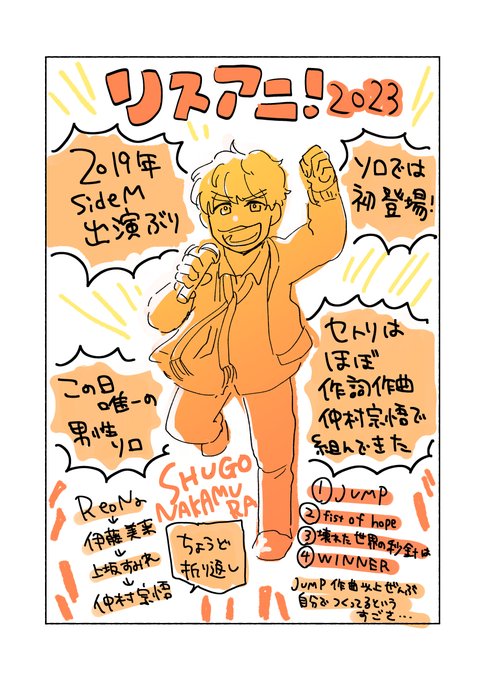 リスアニ！2023
2019年
SideM
出演ぶり
ソロでは
初登場！
この日
唯一の
男性ソロ
セトリは
ほぼ
作詞作曲
仲村宗悟で
組んできた
SHUGO
NAKAMU
RA
ReoNa
↓
伊藤美来
↓
上坂すみれ
↓
仲村宗悟
ちょうど
折り返し
①JUMP
②fist of hope
③壊れた世界の秒針は
④WINNER
JUMP作曲以外ぜんぶ
自分でつくってるという
すごさ…